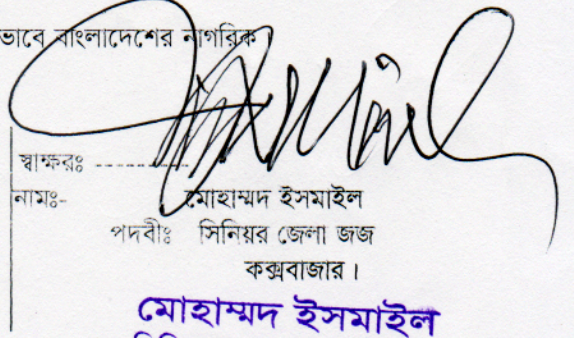 ভাবে বাংলাদেশের নাগরিক।
স্বাক্ষরঃ --------
নামঃ- মোহাম্মদ ইসমাইল
পদবীঃ সিনিয়র জেলা জজ
কক্সবাজার।
মোহাম্মদ ইসমাইল